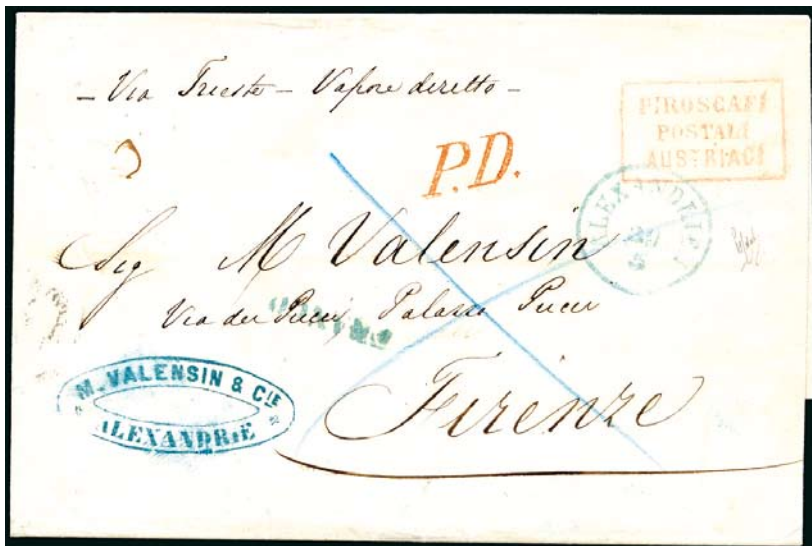 - Via Trieste - Vapore diretto -
PIROSCAFI
POSTALI
AUSTRIACI
P.D.
ALEXANDRIEN
Sig M Valensin
Via dei Pucci, Palazzo Pucci
FRANCO
M. VALENSIN & CIE
ALEXANDRIE
Firenze